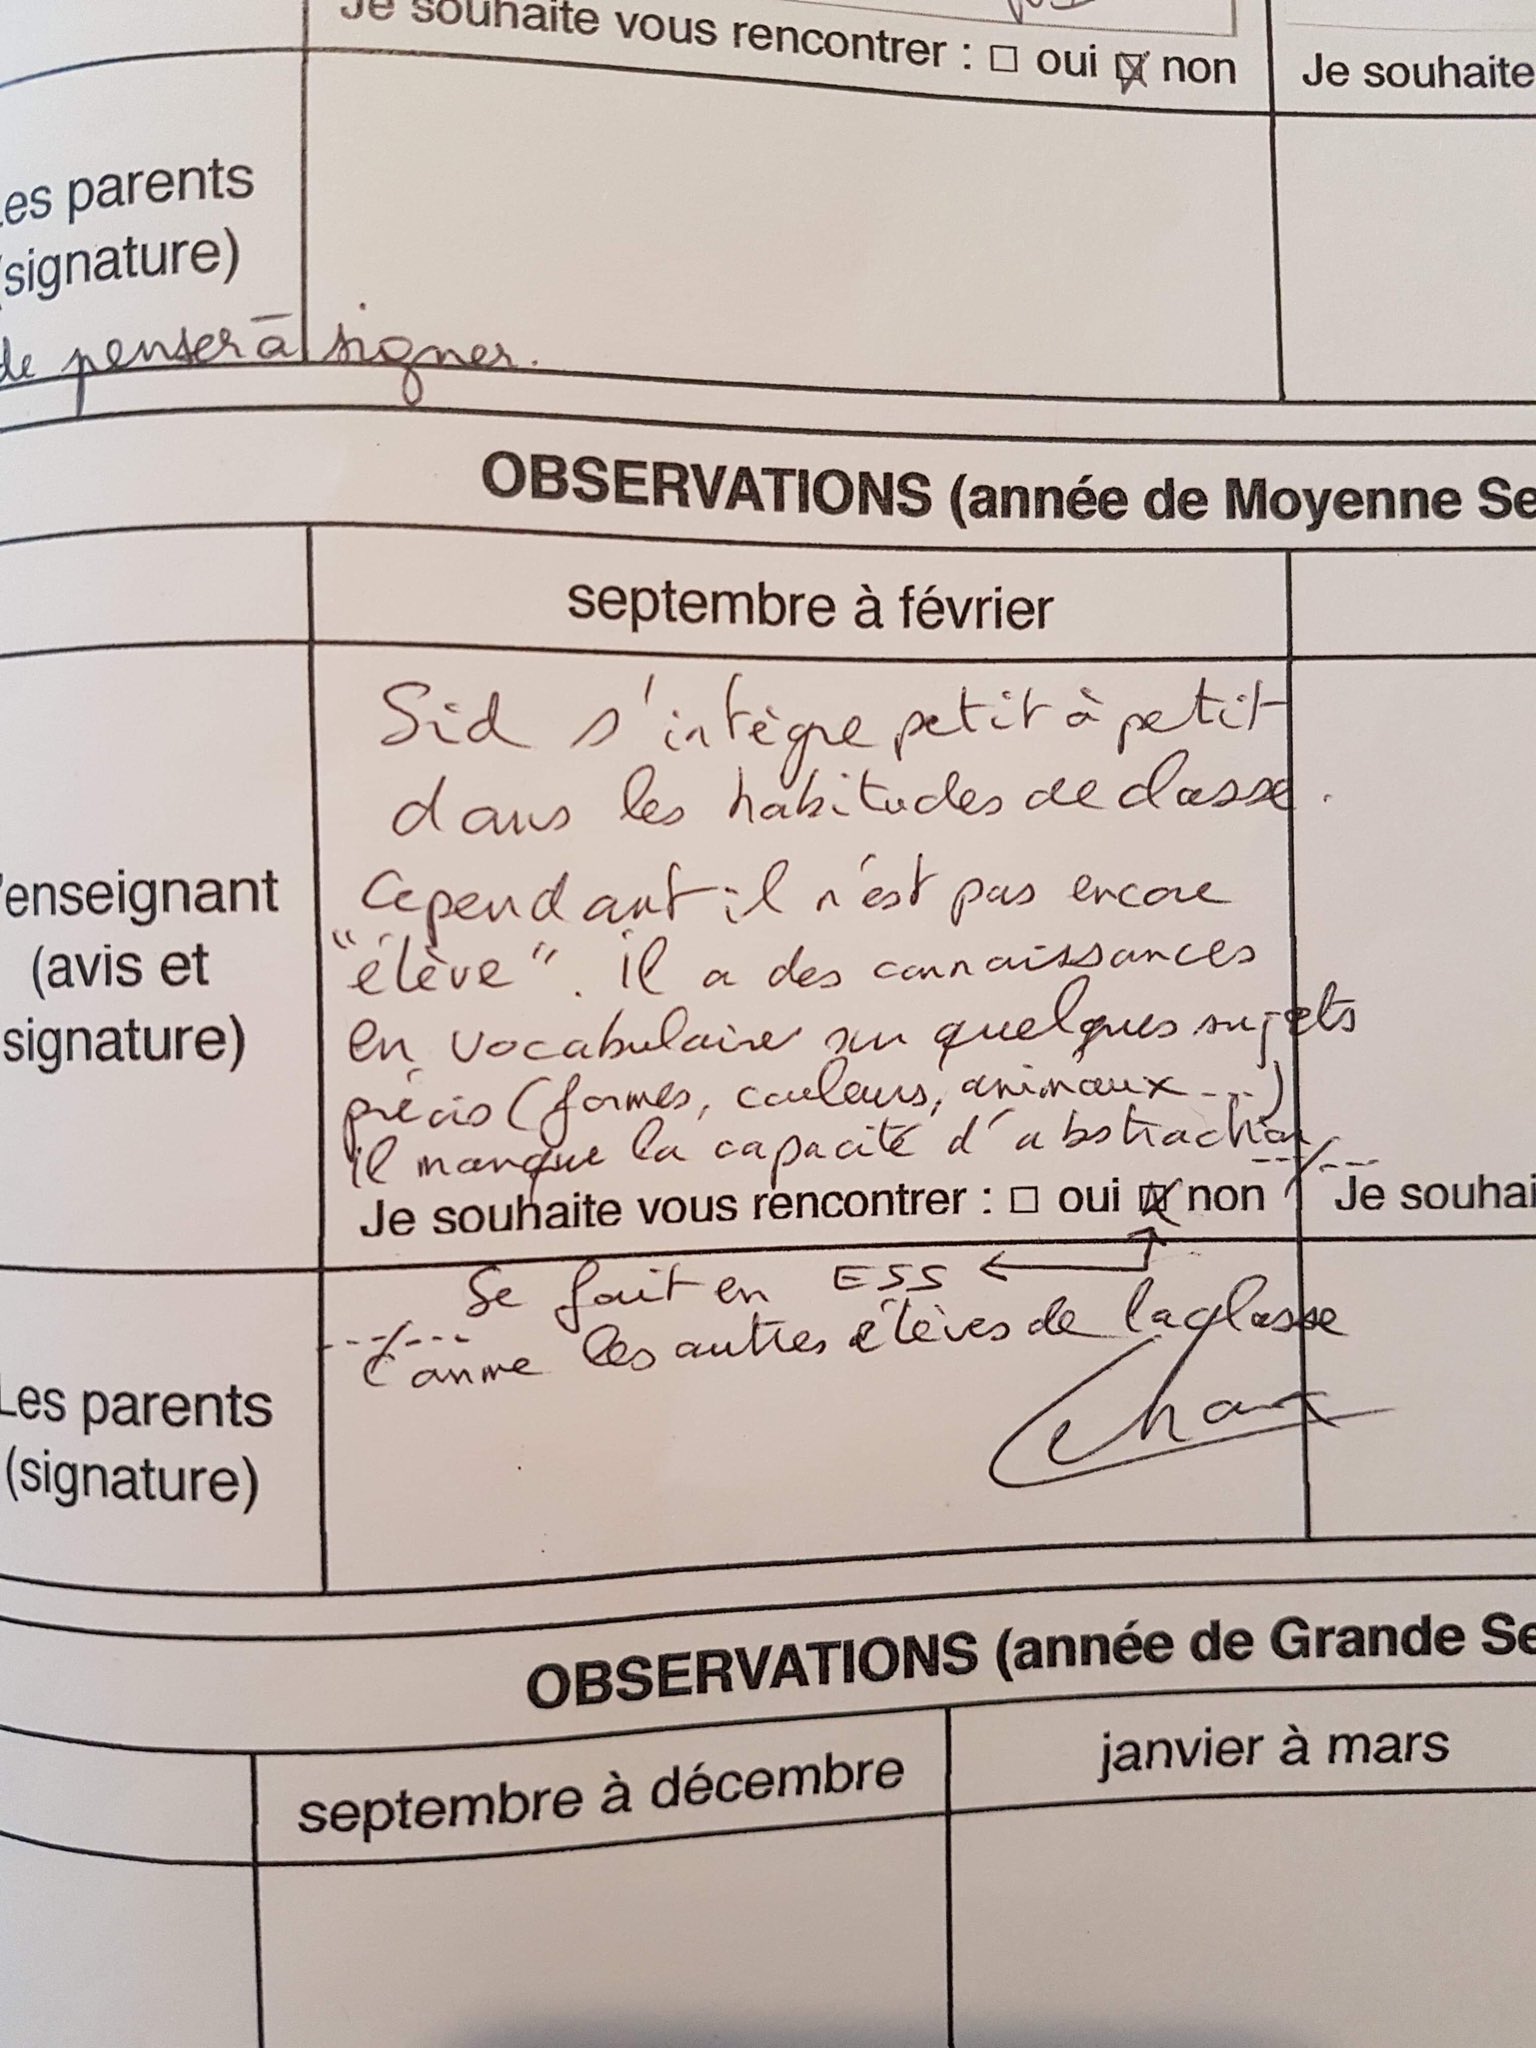 Je souhaite vous rencontrer : ☐ oui ☒ non
Je souhaite
Les parents
(signature)
de penser à signer.
OBSERVATIONS (année de Moyenne Se
septembre à février
Sid s'intègre petit à petit
dans les habitudes de classe.
Cependant il n'est pas encore
"élève". il a des connaissances
en vocabulaire sur quelques sujets
précis (formes, couleurs, animaux...)
il manque la capacité d'abstraction
---/---
'enseignant
(avis et
signature)
Je souhaite vous rencontrer : ☐ oui ☒ non
Je souhai
Se fait en ESS
---/---
comme les autres élèves de la classe
Les parents
(signature)
OBSERVATIONS (année de Grande Se
septembre à décembre
janvier à mars